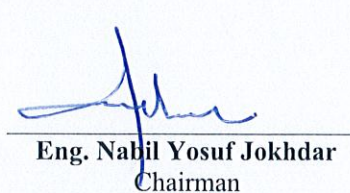 Eng. Nabil Yosuf Jokhdar
Chairman